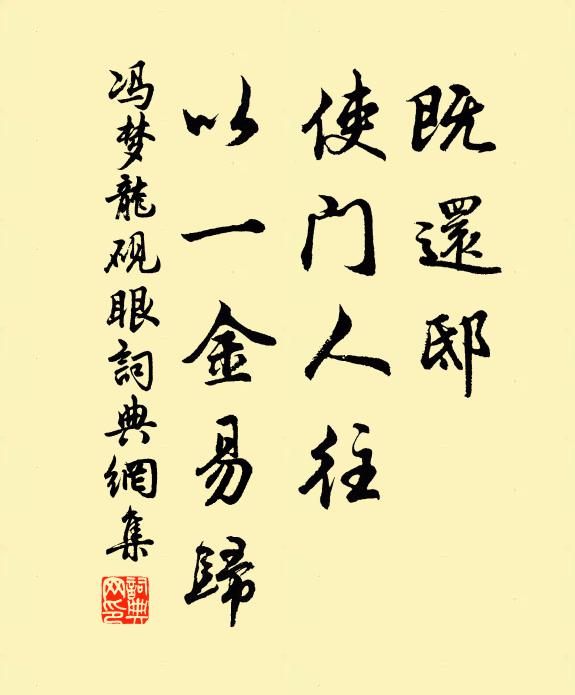 既還邸
使门人往
以一金易歸
冯梦龍砚眼詞典網集
詞典網印